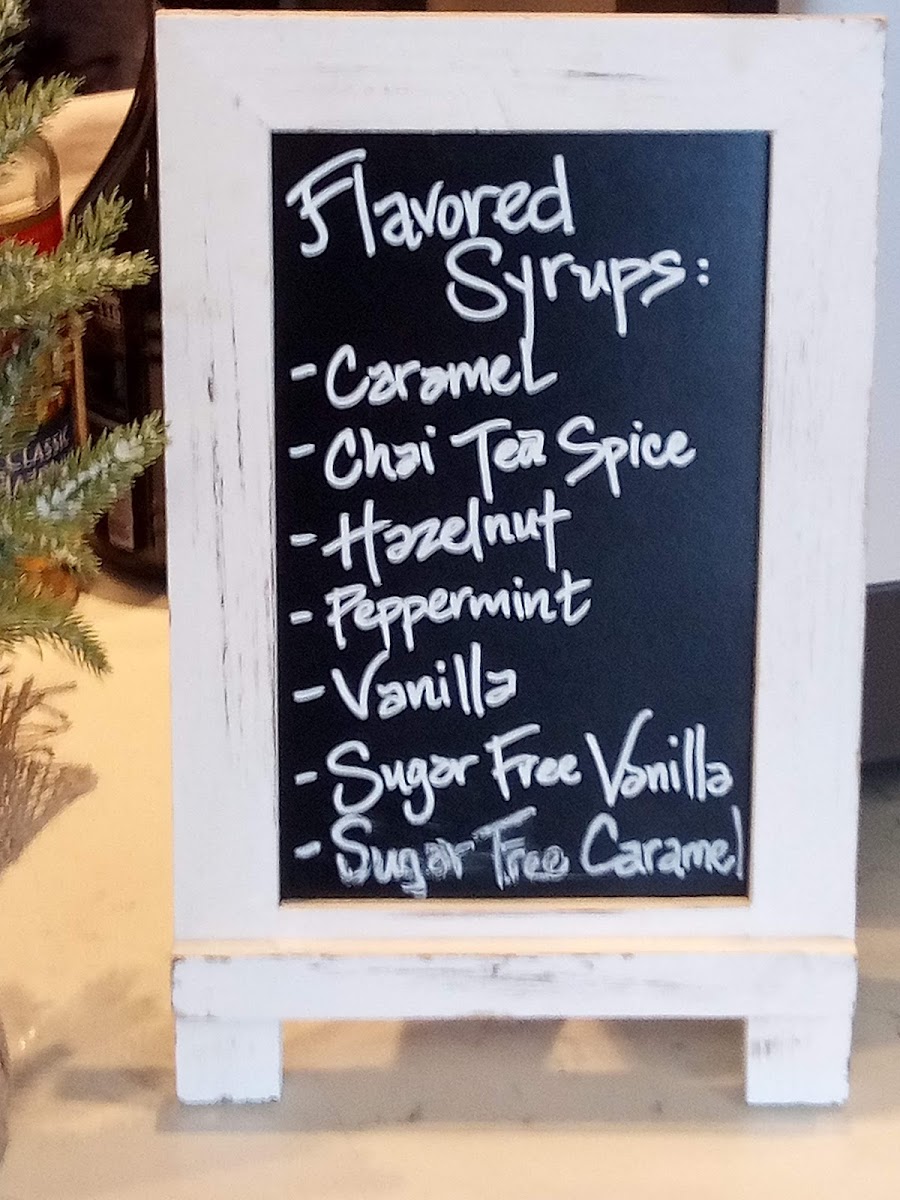 Flavored
Syrups:
- Caramel
- Chai Tea Spice
- Hazelnut
- Peppermint
- Vanilla
- Sugar Free Vanilla
- Sugar Free Caramel
CLASSIC